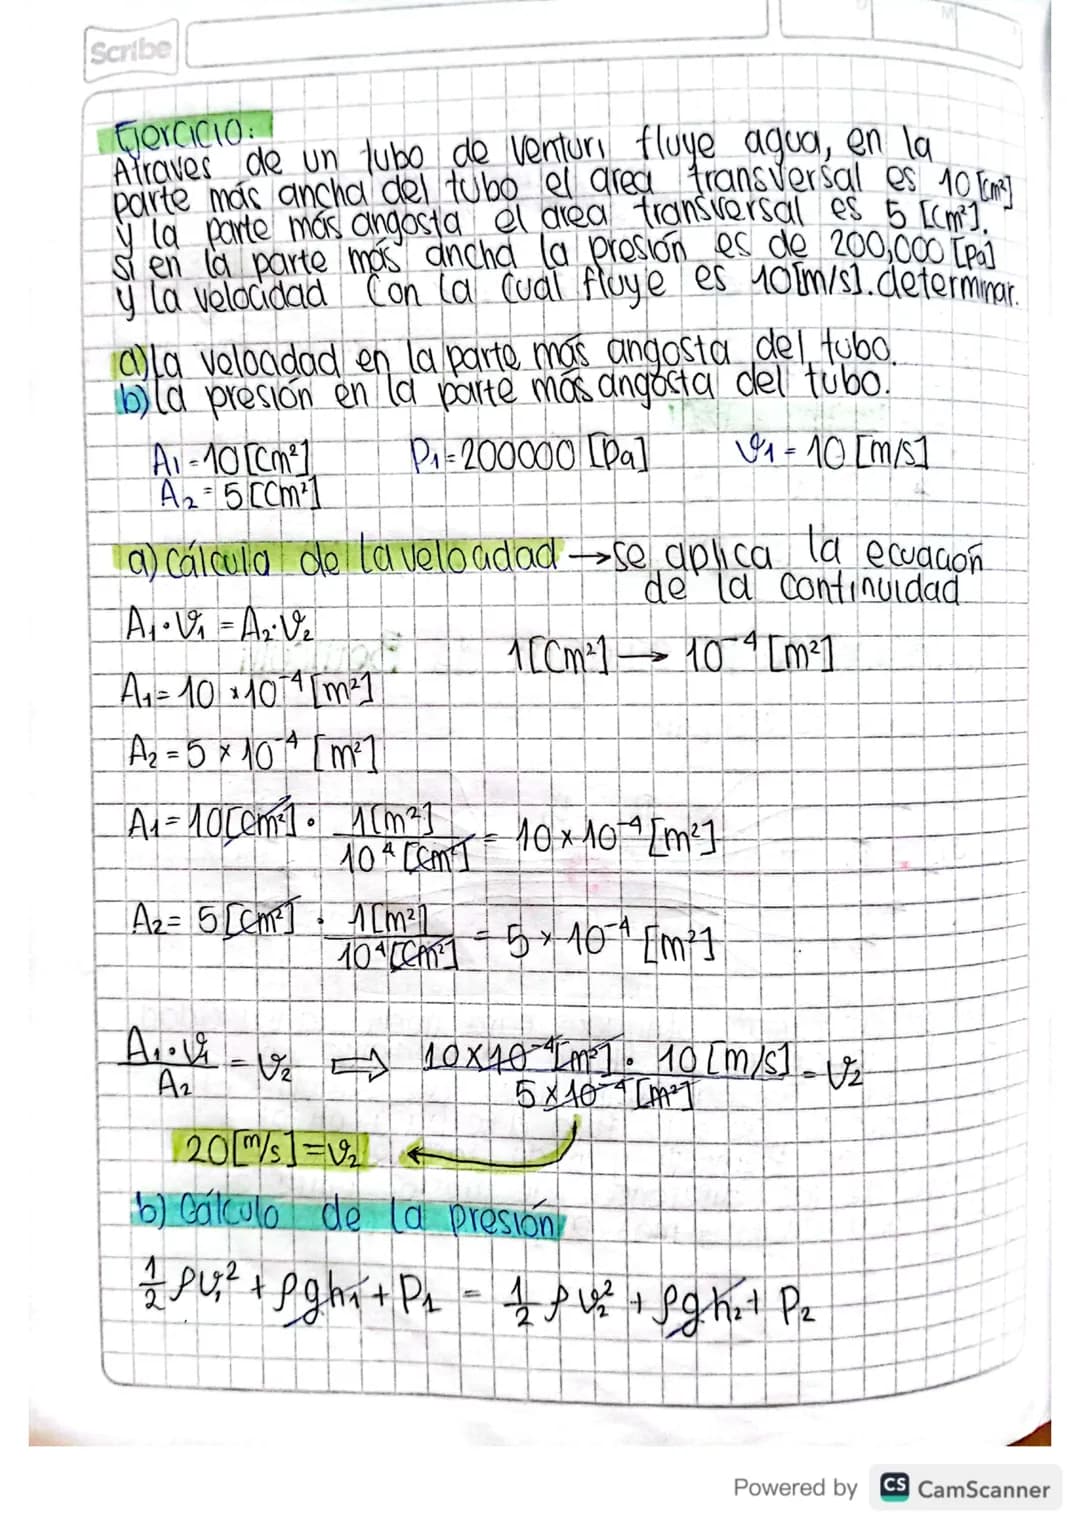 Scribe
M
Ejercicio:
Atraves de un tubo de venturi fluye agua, en la
parte más ancha del tubo el area transversal es 10 [cm²]
y la parte más angosta el area transversal es 5 [cm²].
si en la parte más ancha la presión es de 200,000 [Pa]
y la velocidad con la cual fluye es 10[m/s]. determinar.
a) la velocidad en la parte más angosta del tubo.
b) la presión en la parte más angosta del tubo.
A₁ = 10 [cm²] P₁ = 200000 [Pa] v₁ = 10 [m/s]
A₂ = 5 [cm²]
a) cálculo de la velocidad → se aplica la ecuación
de la continuidad
A₁·v₁ = A₂·v₂
1[cm²] → 10⁻⁴ [m²]
A₁ = 10 × 10⁻⁴ [m²]
A₂ = 5 × 10⁻⁴ [m²]
A₁ = 10[cm²] · 1[m²] / 10⁴ [cm²] = 10 × 10⁻⁴ [m²]
A₂ = 5 [cm²] · 1[m²] / 10⁴ [cm²] = 5 × 10⁻⁴ [m²]
A₁·v₁ / A₂ = v₂ ⇒ 10×10⁻⁴ [m²] · 10 [m/s] / 5 × 10⁻⁴ [m²] = v₂
20[m/s] = v₂ ←
b) Cálculo de la presión
½ ρv₁² + ρgh₁ + P₁ = ½ ρv₂² + ρgh₂ + P₂
Powered by CS CamScanner